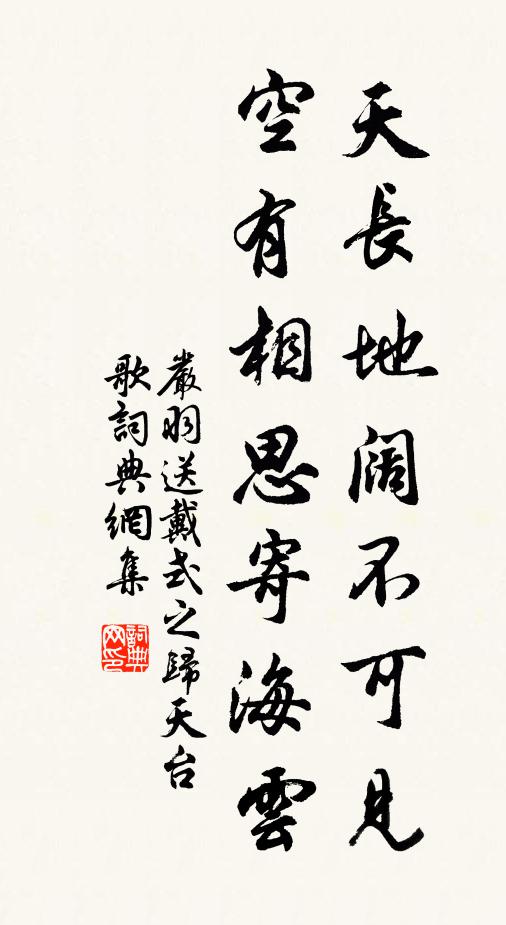 天長地阔不可見
空有相思寄海雲
嚴羽送戴式之歸天台
歌詞典網集
詞典網印